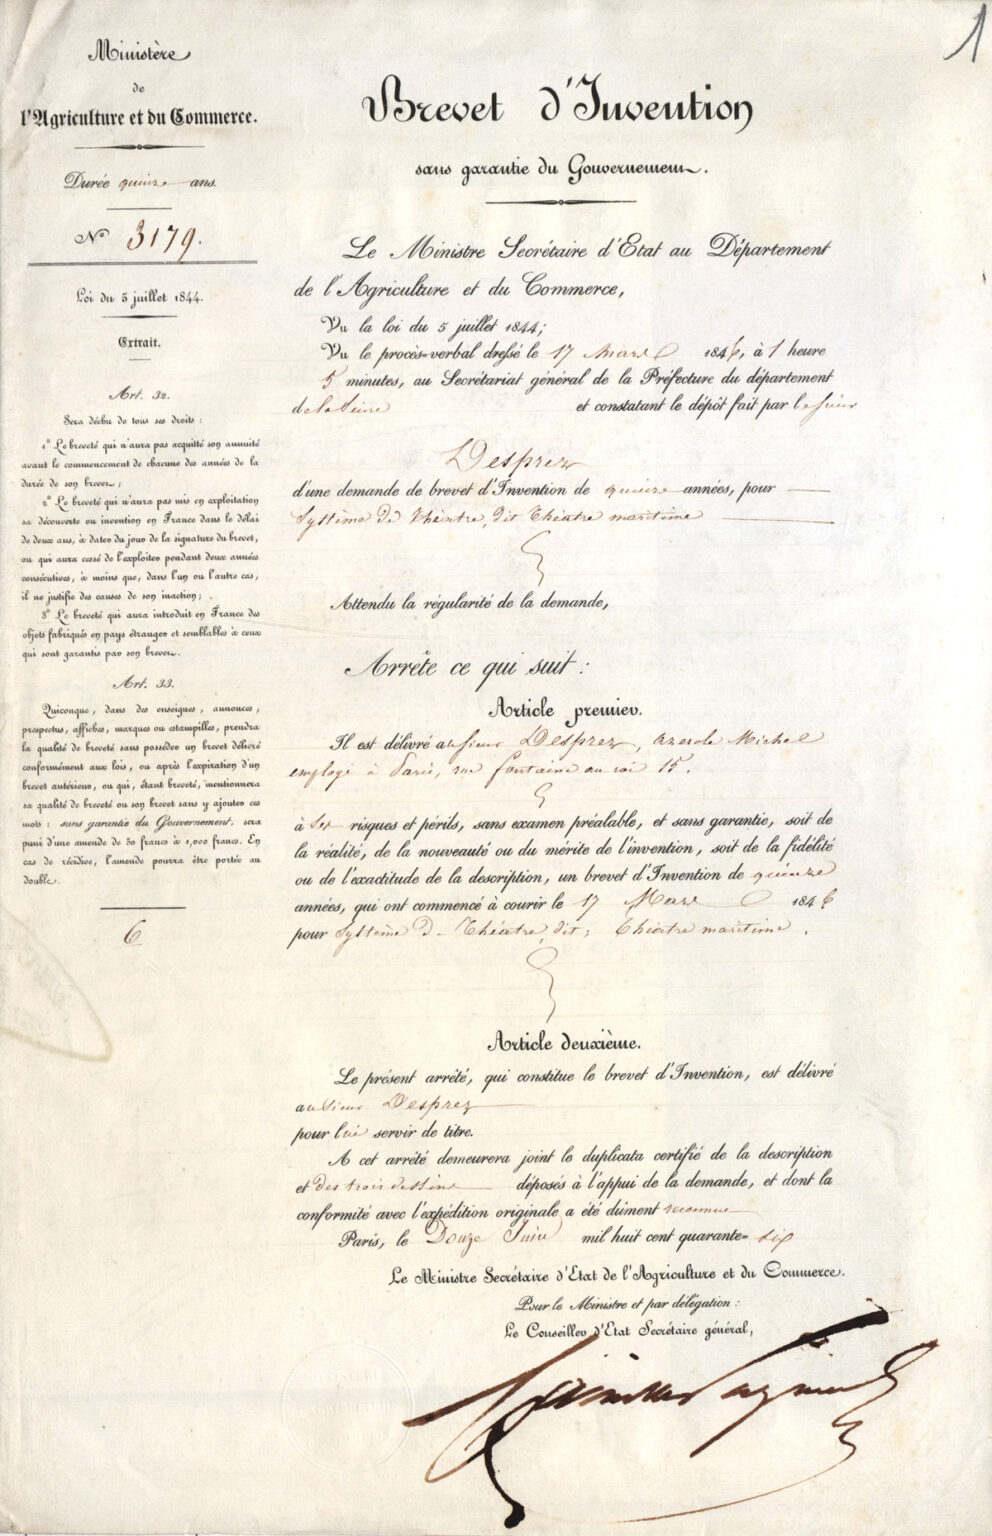 1
Ministère
de
l'Agriculture et du Commerce.
Durée quinze ans.
N° 3179.
Loi du 5 juillet 1844.
Extrait.
Art. 32.
Sera déchu de tous ses droits :
1° Le breveté qui n'aura pas acquitté son annuité
avant le commencement de chacune des années de la
durée de son brevet ;
2° Le breveté qui n'aura pas mis en exploitation
sa découverte ou invention en France dans le délai
de deux ans, à dater du jour de la signature du brevet,
ou qui aura cessé de l'exploiter pendant deux années
consécutives, à moins que, dans l'un ou l'autre cas,
il ne justifie des causes de son inaction ;
3° Le breveté qui aura introduit en France des
objets fabriqués en pays étranger et semblables à ceux
qui sont garantis par son brevet.
Art. 33.
Quiconque, dans des enseignes, annonces,
prospectus, affiches, marques ou estampilles, prendra
la qualité de breveté sans posséder un brevet délivré
conformément aux lois, ou après l'expiration d'un
brevet antérieur, ou qui, étant breveté, mentionnera
sa qualité de breveté ou son brevet sans y ajouter ces
mots : sans garantie du Gouvernement, sera
puni d'une amende de 50 francs à 1,000 francs. En
cas de récidive, l'amende pourra être portée au
double.
6
Brevet d'Invention
sans garantie du Gouvernement.
Le Ministre Secrétaire d'Etat au Département
de l'Agriculture et du Commerce,
Vu la loi du 5 juillet 1844;
Vu le procès-verbal dressé le 17 Mars 1846, à 1 heure
5 minutes, au Secrétariat général de la Préfecture du département
de la Seine et constatant le dépôt fait par le sieur
Desprez
d'une demande de brevet d'Invention de quinze années, pour
Système de théatre, dit théatre maritime
Attendu la régularité de la demande,
Arrête ce qui suit :
Article premier.
Il est délivré au sieur Desprez, Michel
employé à Paris, rue fontaine au roi 15.
à ses risques et périls, sans examen préalable, et sans garantie, soit de
la réalité, de la nouveauté ou du mérite de l'invention, soit de la fidélité
ou de l'exactitude de la description, un brevet d'Invention de quinze
années, qui ont commencé à courir le 17 Mars 1846
pour Système de Théatre, dit : théatre maritime.
Article deuxième.
Le présent arrêté, qui constitue le brevet d'Invention, est délivré
au sieur Desprez
pour lui servir de titre.
A cet arrêté demeurera joint le duplicata certifié de la description
et des trois dessins déposés à l'appui de la demande, et dont la
conformité avec l'expédition originale a été dûment reconnue
Paris, le Douze Juin mil huit cent quarante-six
Le Ministre Secrétaire d'Etat de l'Agriculture et du Commerce.
Pour le Ministre et par délégation :
Le Conseiller d'Etat Secrétaire général,